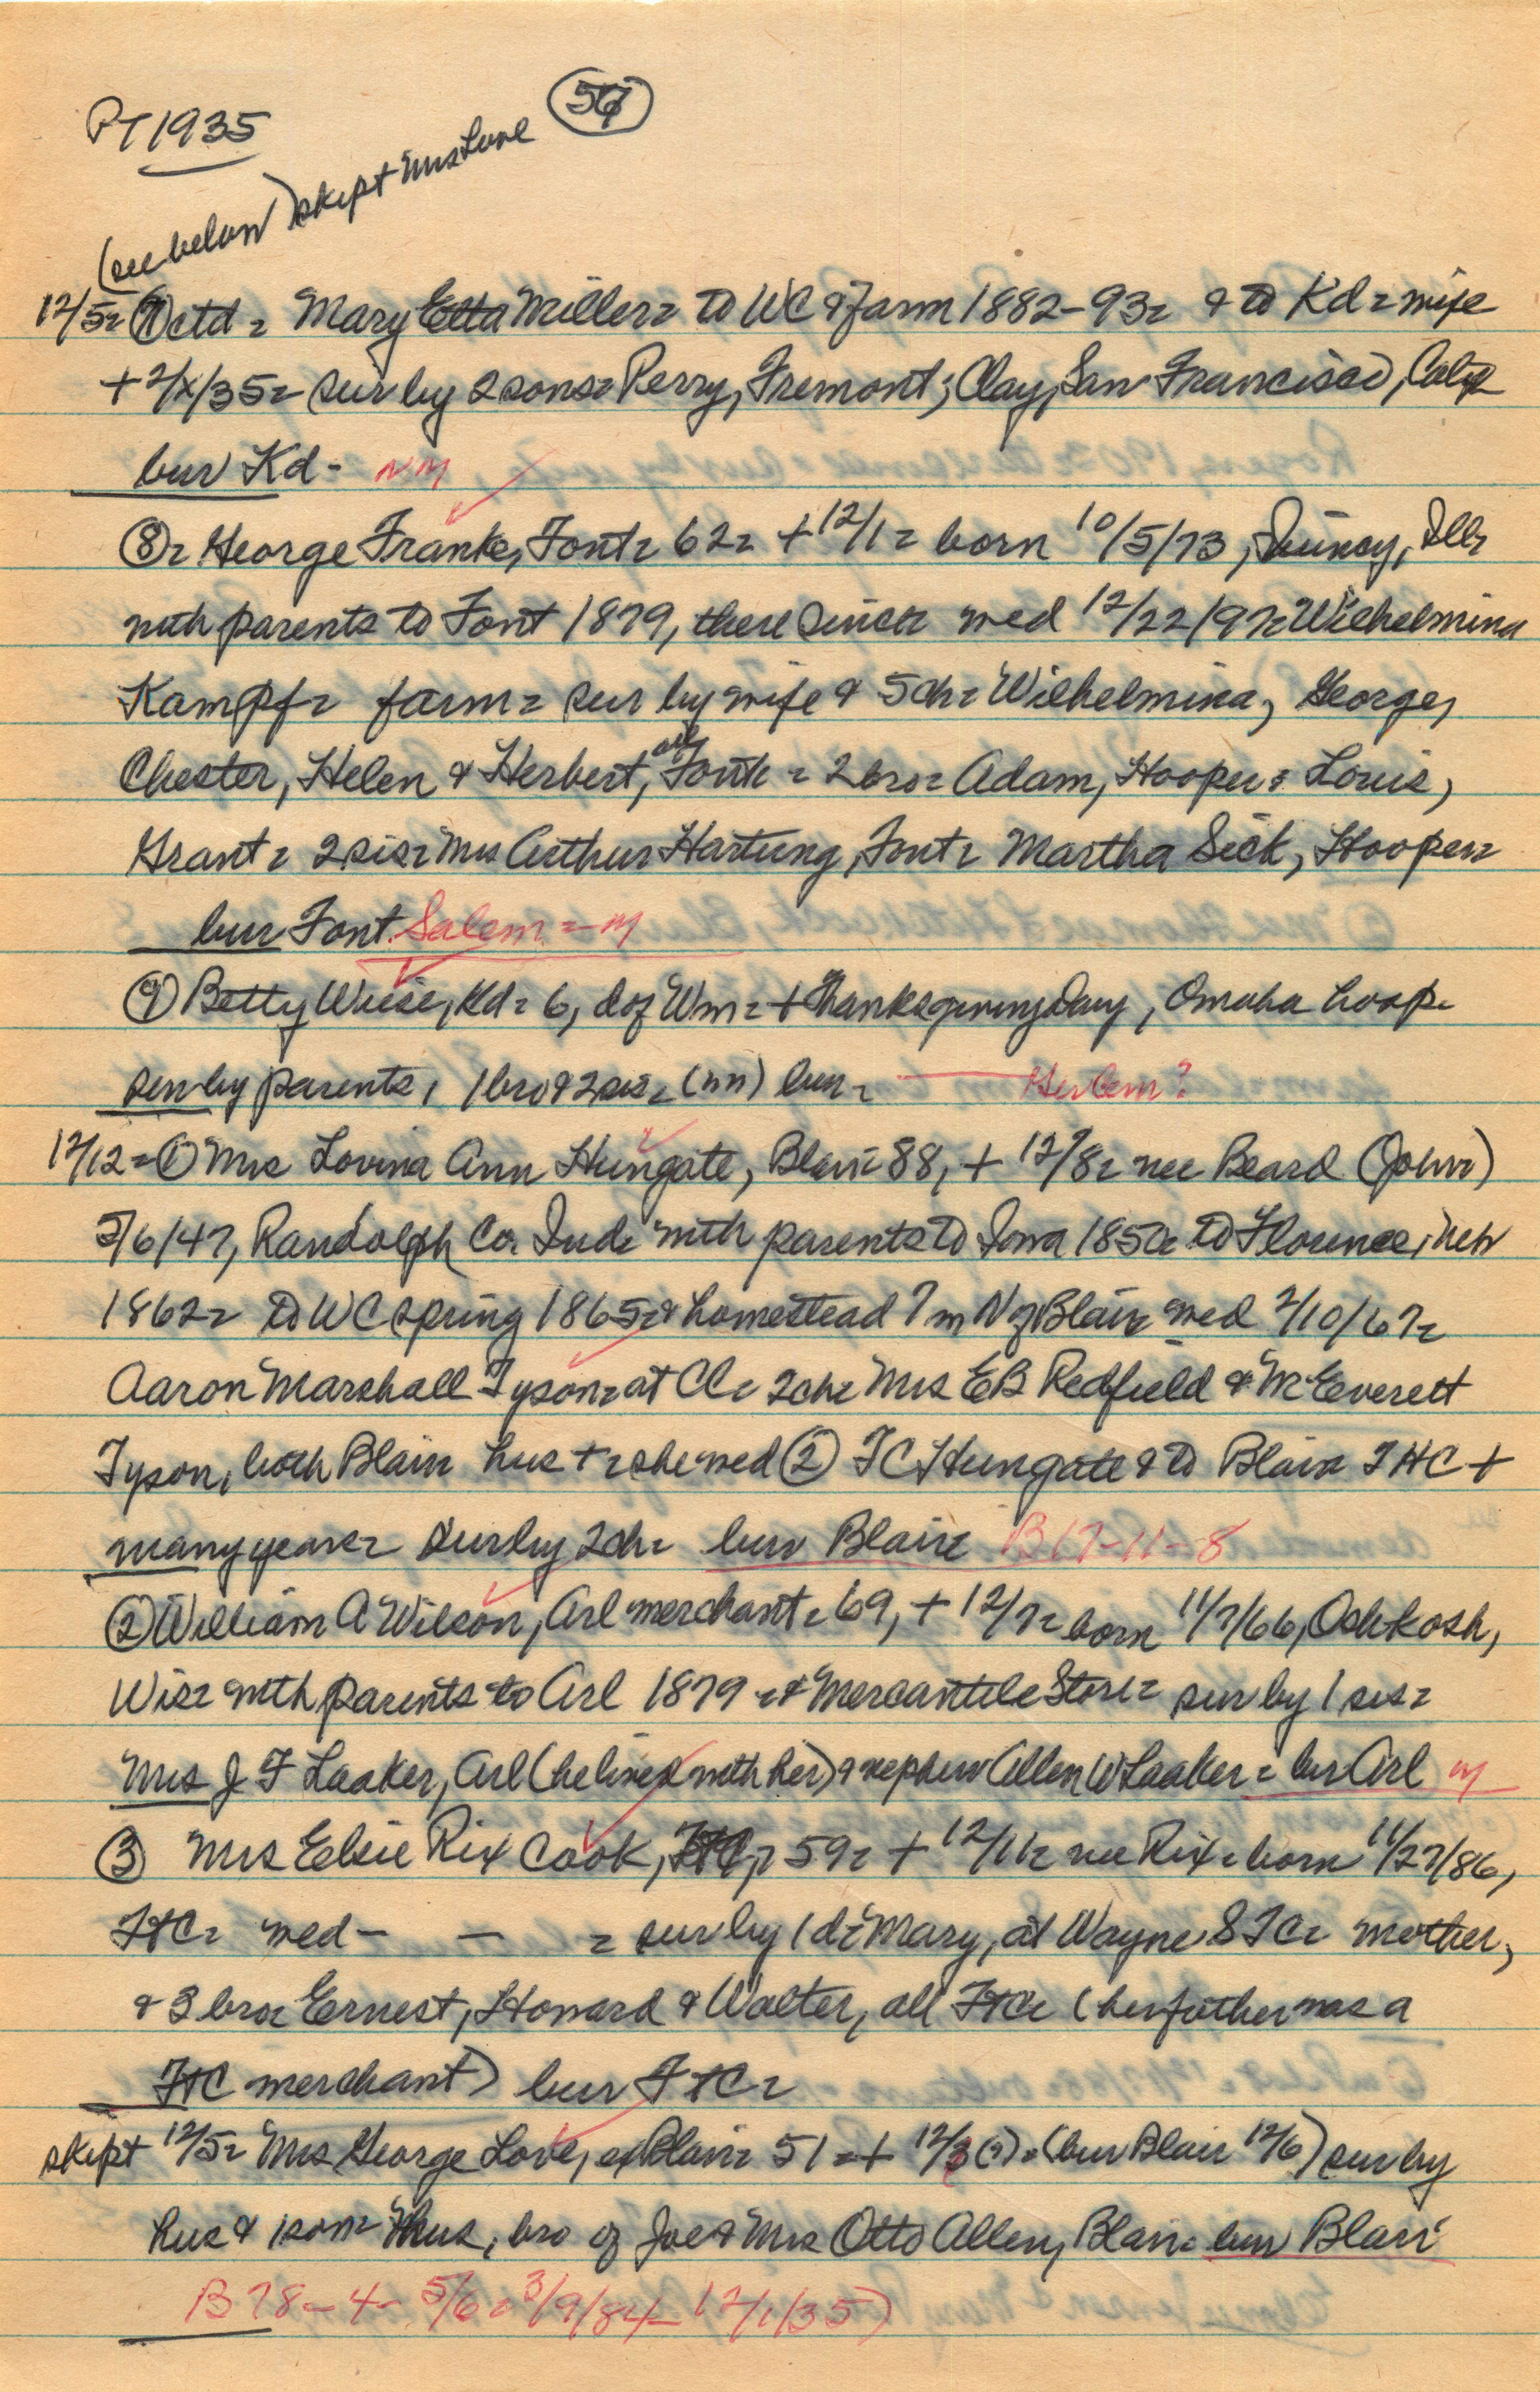 PT 1935
(see below) skipt Mrs Love
57
12/5= (7) ctd = Mary Etta Miller= to WC & farm 1882-93= & to Kd = wife
+ 2/x/35= sur by 2 sons= Perry, Fremont; Clay, San Francisco, Calif
bur Kd - NM
(8)= George Franke, Font= 62= + 12/1 = born 10/5/73, Quincy, Ill=
with parents to Font 1879, there since= wed 12/22/97= Wilhelmina
Kampf= farm= sur by wife & 5ch= Wilhelmina, George,
Chester, Helen & Herbert, all Font= = 2bro= Adam, Hooper & Louis,
Grant= 2sis= Mrs Arthur Hartung, Font= Martha Sick, Hooper=
bur Font. Salem = - M
(9) Betty Wiese, Kd= 6, d of Wm= + Thanksgiving Day, Omaha hosp=
sur by parents, 1bro & 2sis= (nn) bur= Ger Cem?
12/12= (1) Mrs Lovina Ann Hungate, Blair= 88, + 12/8= nee Beard (John)
5/6/47, Randolph Co. Ind= with parents to Iowa 185 = to Florence, Neb
1862= to WC spring 1865= & homestead 7m N of Blair= wed 2/10/67=
Aaron Marshall Tyson= at CC= 2ch= Mrs EB Redfield & Everett
Tyson, both Blair= hus += she wed (2) TC Hungate & to Blair= THC +
many years= sur by 2ch= bur Blair= B17-11-8
(2) William A Wilson, Arl merchant= 69, + 12/7= born 11/7/66, Oshkosh,
Wis= with parents to Arl 1879 = & Mercantile Store= sur by 1 sis=
Mrs J F Laaker, Arl (he lived with her) & nephew Allen W Laaker= bur Arl M
(3) Mrs Elsie Rix Cook, FtC, = 59= + 12/11= nee Rix= born 11/27/86,
FtC= wed - - = sur by 1 d= Mary, at Wayne STC= mother,
& 3 bro= Ernest, Howard & Walter, all FtC= (her father was a
FtC merchant) bur FtC=
skipt 12/5= Mrs George Love, ex Blair= 51 = + 12/3 (?) = (bur Blair 12/6) sur by
hus & 1 son= , bro of Joe & Mrs Otto Allen, Blair= bur Blair
B 78-4- 5/6= 3/9/84- 12/1/35)